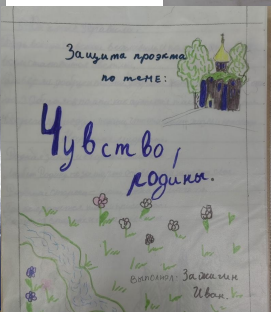 Защита проэкта
по теме:
Чувство
родины.
выполнил: Зажагин
Иван.